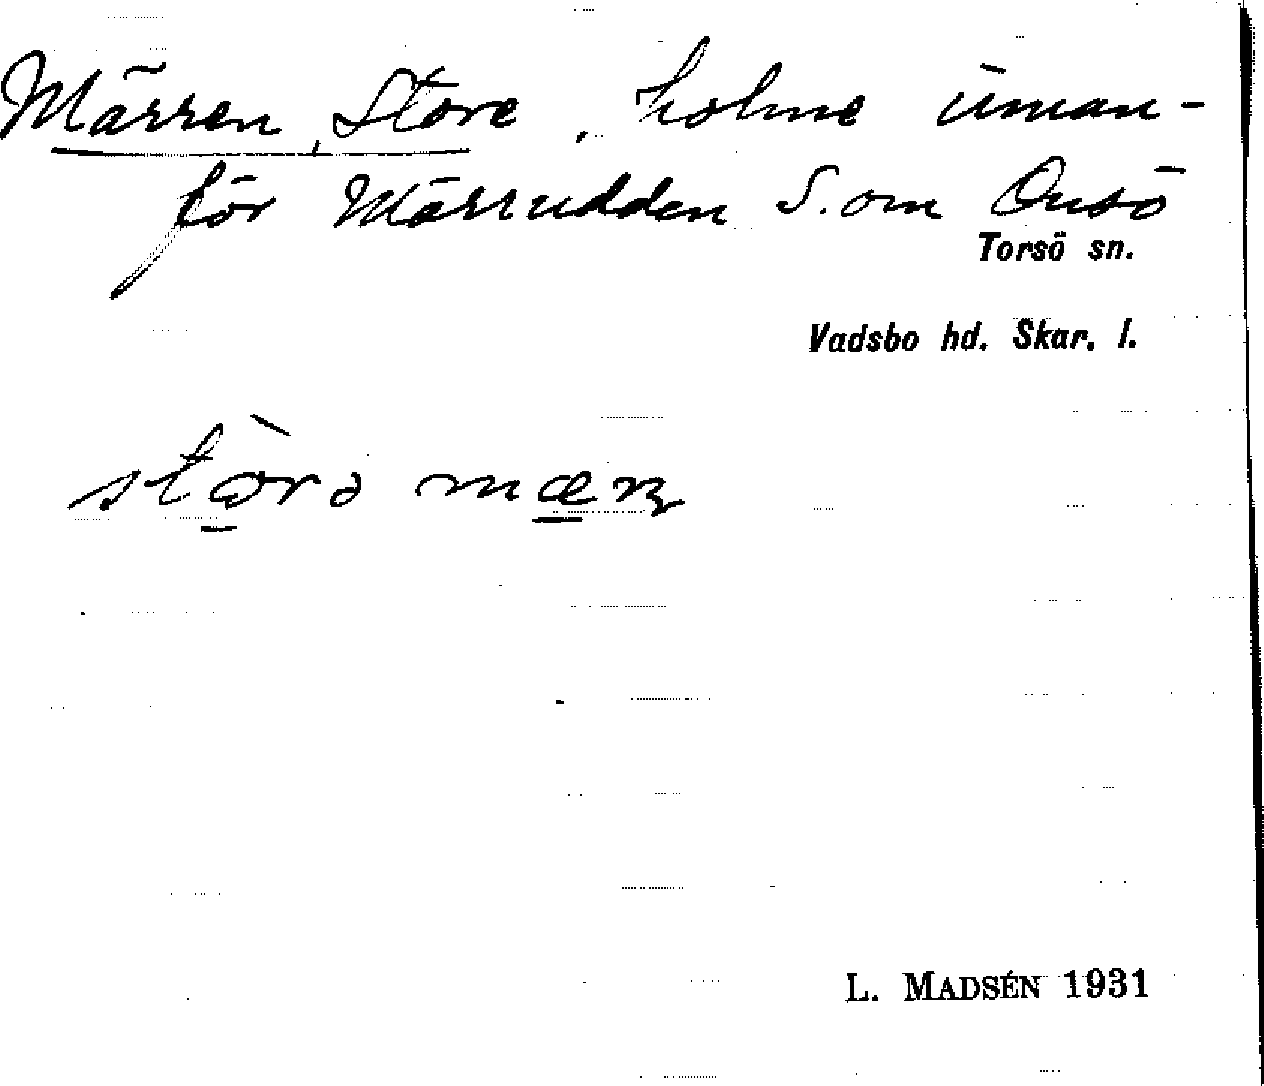 Märren, Store, holme innan-
för Märrudden S. om Onsö
Torsö sn.
Vadsbo hd. Skar. l.
L. MADSÉN 1931